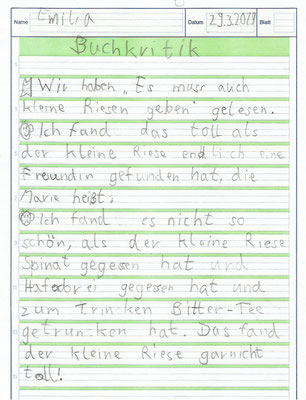 Name Emilia Datum 29.3.2021 Blatt
Buchkritik
Wir haben „Es muss auch
kleine Riesen geben" gelesen.
Ich fand das toll als
der kleine Riese endlich eine
Freundin gefunden hat, die
Marie heißt.
Ich fand es nicht so
schön, als der kleine Riese
Spinat gegessen hat und
Haferbrei gegessen hat und
zum Trinken Bitter-Tee
getrunken hat. Das fand
der kleine Riese garnicht
toll!